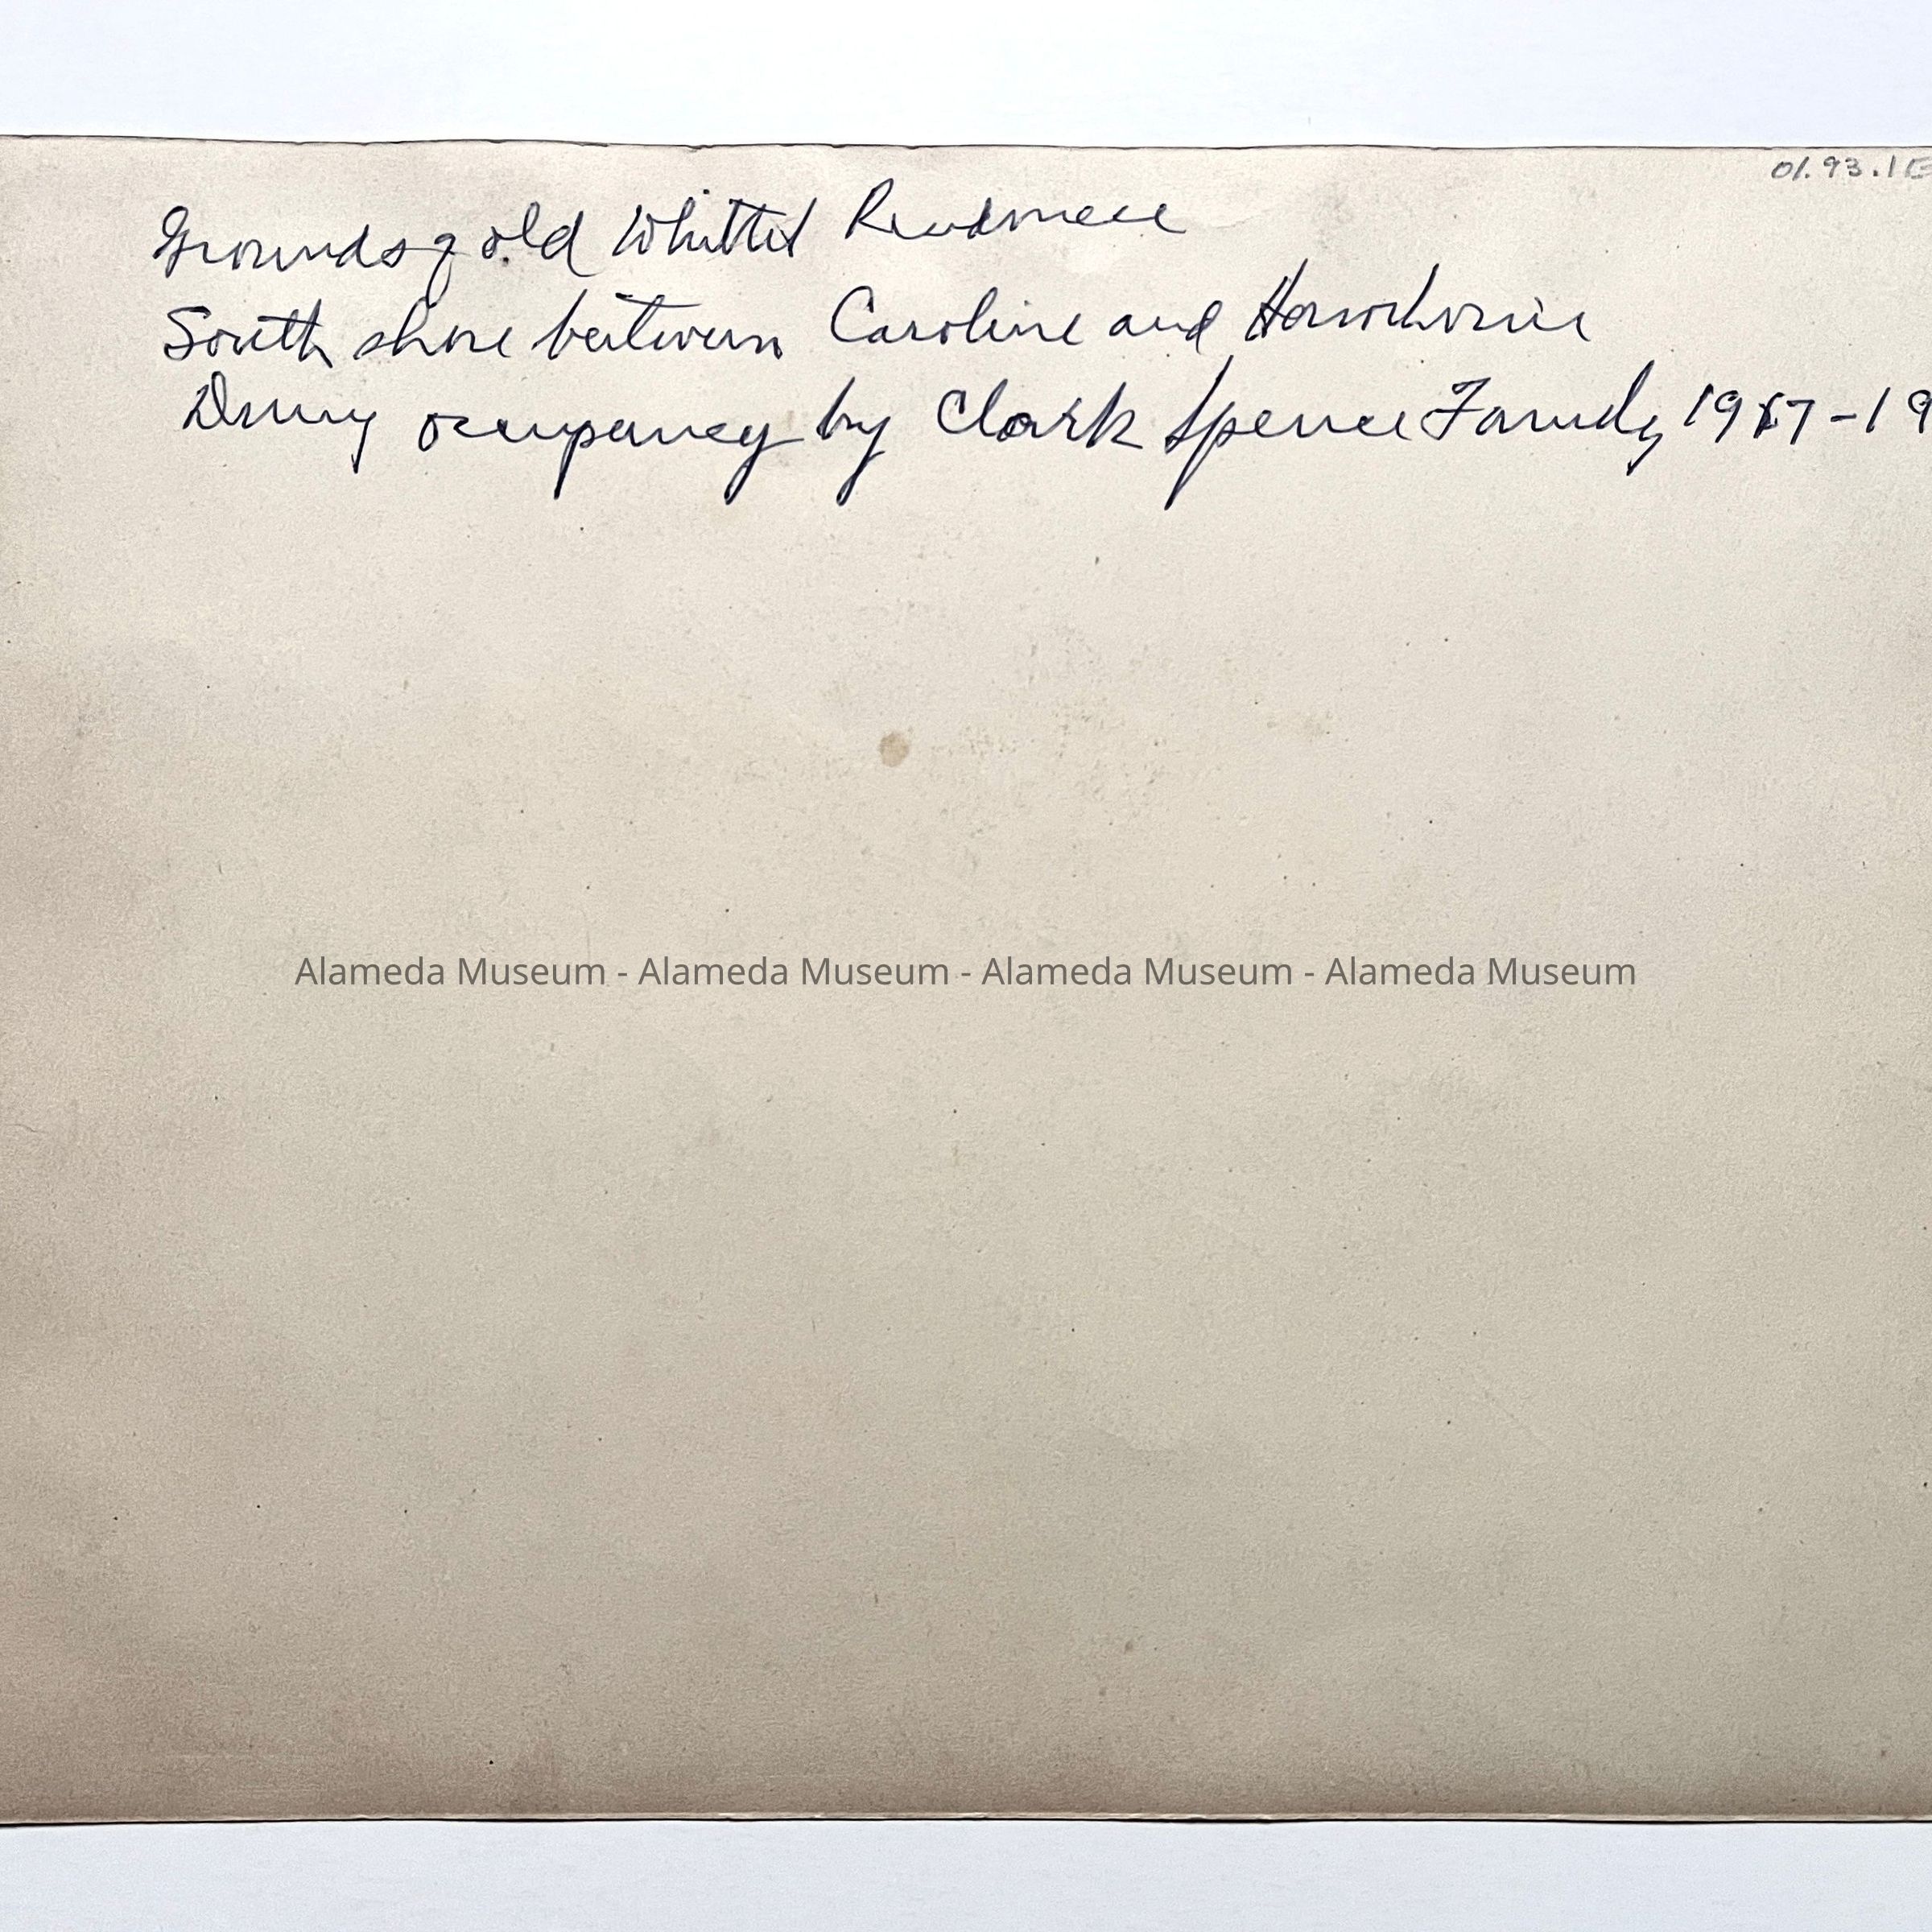 01.93.1
Grounds of old Whittell Residence
South shore between Caroline and Hawthorne
During occupancy by Clark Spence Family 1917-19
Alameda Museum - Alameda Museum - Alameda Museum - Alameda Museum